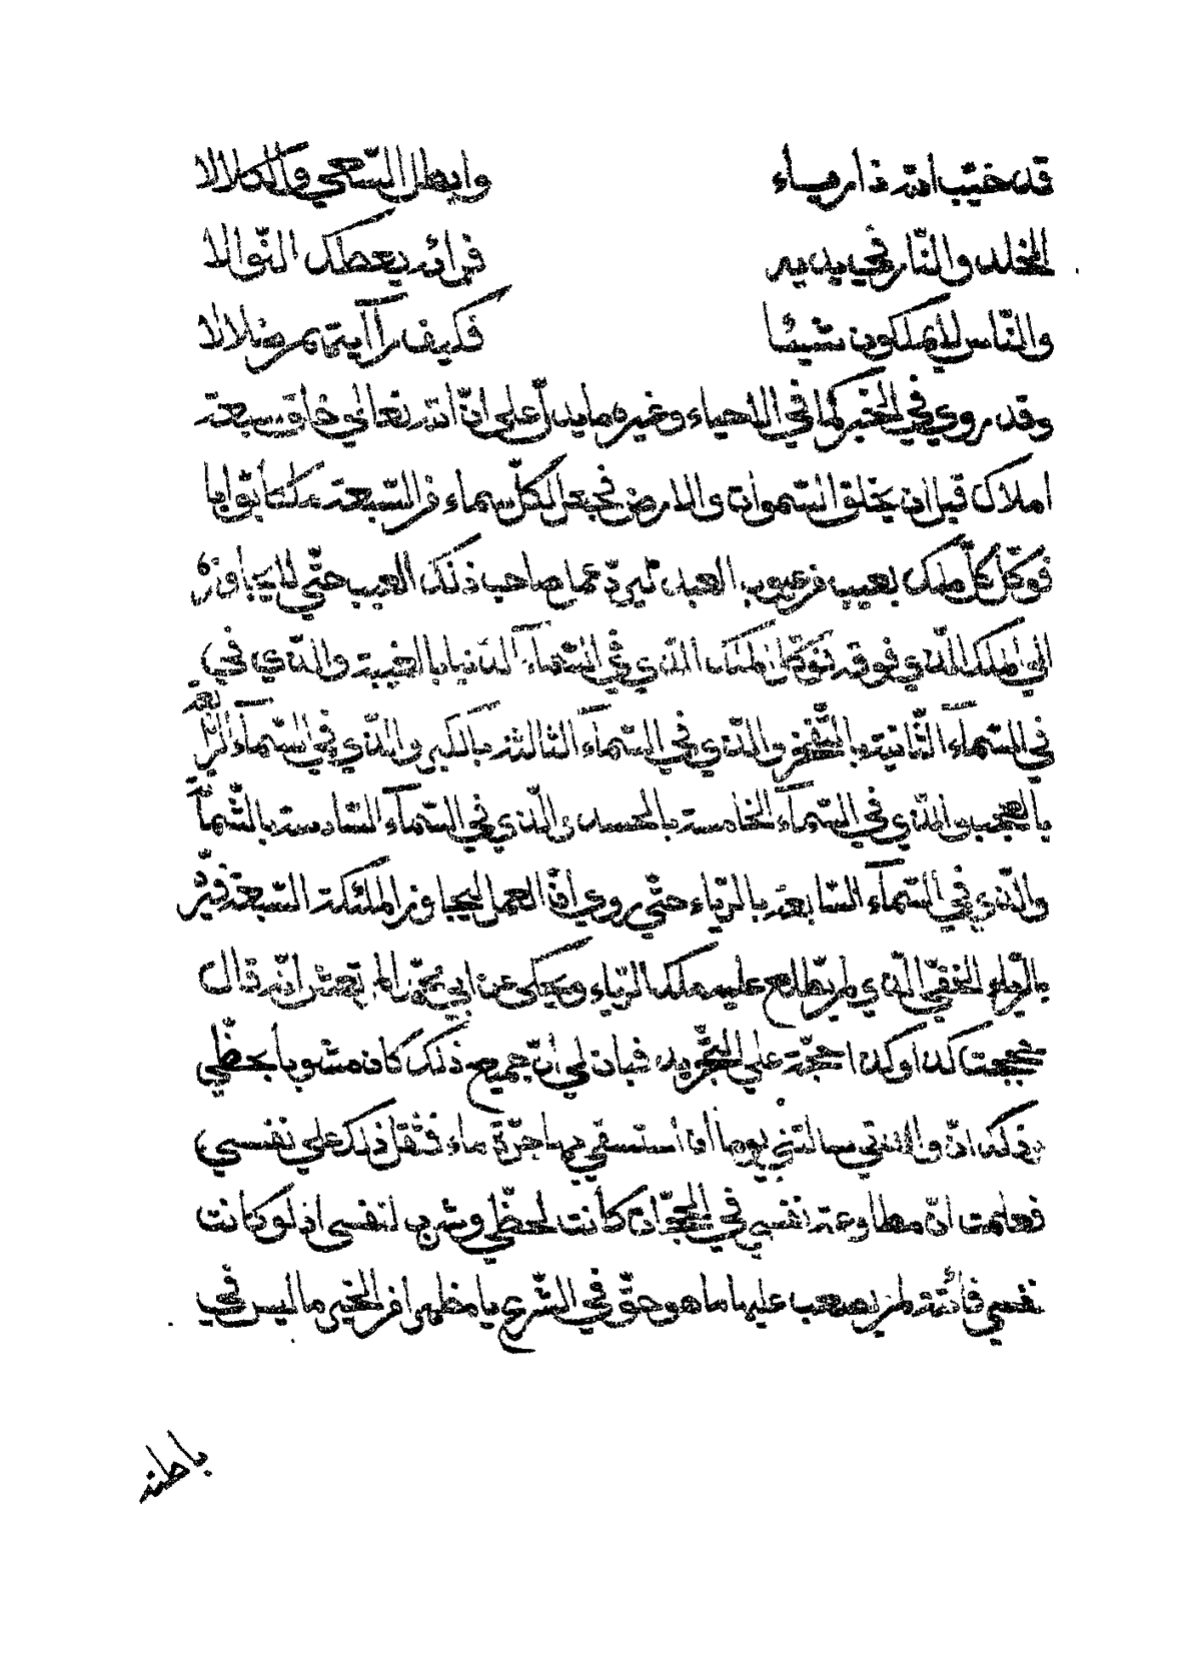 قد خيّب الله ذا رياء وابطل السّعي والكلالا
الخلد والنّار في يديه فرائه يعطك النّوالا
والنّاس لا يملكون شيئا فكيف راآيتهم ضلالا
وقد روي في الخبر كما في الاحياء وغيره ما يدلّ على انّ الله تعالى خلق سبعة
املاك قبل ان يخلق السّموات والارض فجعل لكلّ سماء من السّبعة ملكا بوّابا
فوكّل كلّ ملك بعيب من عيوب العبد ليردّ عمل صاحب ذلك العيب حتّى لا يجاوزه
الى الملك الّذي فوقه فوكّل الملك الّذي في السّماء الدّنيا بالغيبة والّذي في
في السّمآء الثّانية بالفخر والّذي في السّمآء الثالثة بالكبر والّذي في السّمآء الرّابعة
بالعجب والّذي في السّمآء الخامسة بالحسد والّذي في السّمآء السّادسة بالشّماتة
والّذي في السّمآء السّابعة بالرّياء حتّى روي انّ العمل ليجاوز الملئكة السّبعة فيردّ
بالرّياء الخفيّ الّذي لم يطّلع عليه ملك الرّياء ويحكى عن ابي محمّد المرتعش انّه قال
حججت كذا وكذا حجّة على التّجريد فبان لي انّ جميع ذلك كان مشوبا بحظّي
وذلك انّ والدتي سالتني يوما ان استسقي لها جرّة ماء فثقل ذلك على نفسي
فعلمت انّ مطاوعة نفسي في الحجّات كانت لحظّ وشرب لنفسي اذ لو كانت
نفسي فانية لم يصعب عليها ما هو حقّ في الشّرع يا مظهرا من الخير ما ليس في
باطنه